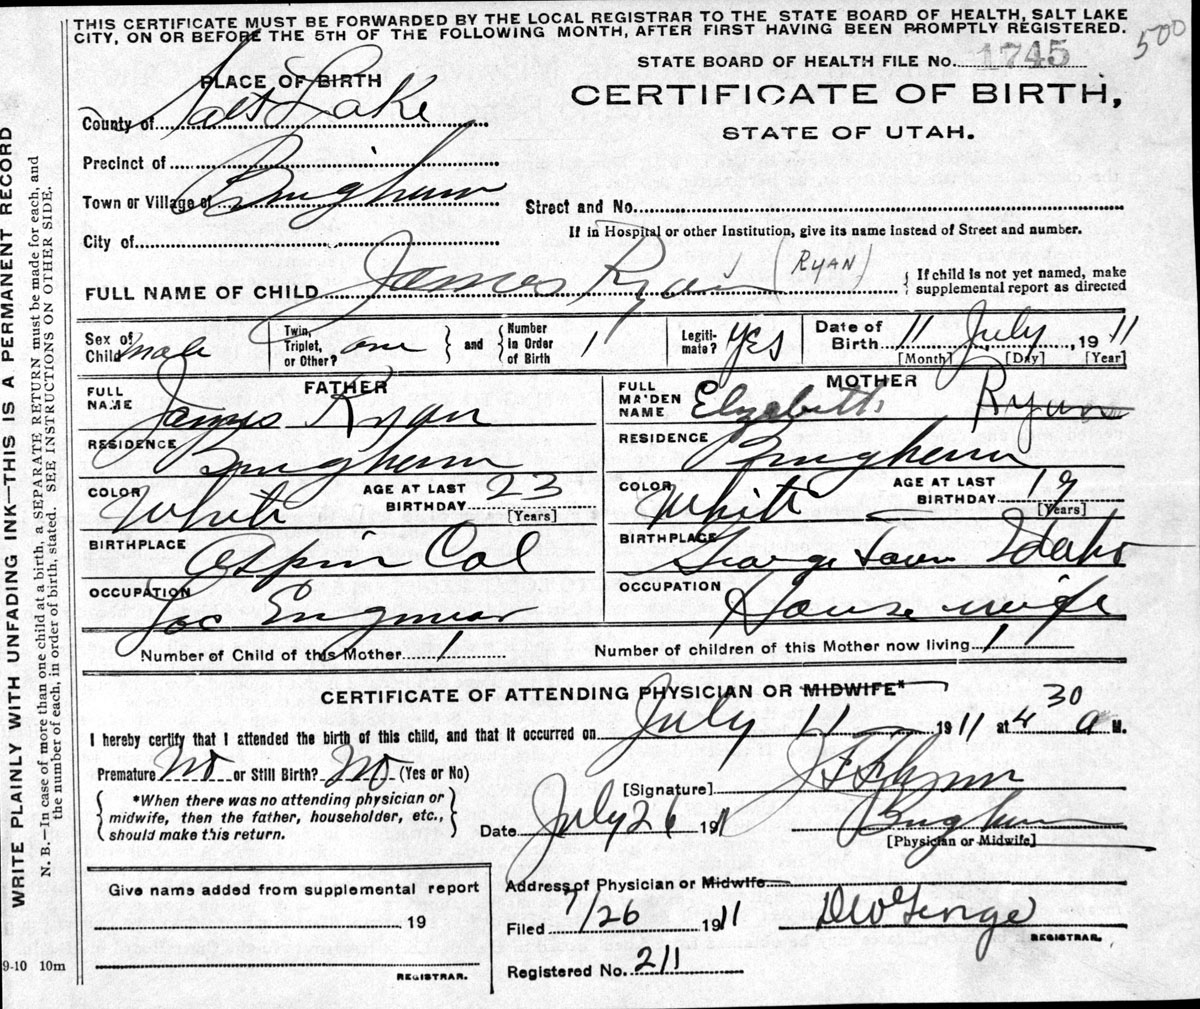 THIS CERTIFICATE MUST BE FORWARDED BY THE LOCAL REGISTRAR TO THE STATE BOARD OF HEALTH, SALT LAKE
CITY, ON OR BEFORE THE 5TH OF THE FOLLOWING MONTH, AFTER FIRST HAVING BEEN PROMPTLY REGISTERED.
500
STATE BOARD OF HEALTH FILE No. 1745
CERTIFICATE OF BIRTH,
STATE OF UTAH.
PLACE OF BIRTH
County of Salt Lake
Precinct of
Town or Village of Bingham
City of
Street and No.
If in Hospital or other Institution, give its name instead of Street and number.
FULL NAME OF CHILD James Ryan (RYAN)
{If child is not yet named, make
supplemental report as directed
Sex of Child Male
Twin, Triplet, or Other? one } and { Number in Order of Birth 1
Legitimate? Yes
Date of Birth 11 July, 1911
[Month] [Day] [Year]
FATHER
FULL NAME James Ryan
RESIDENCE Bingham
COLOR White AGE AT LAST BIRTHDAY 23 [Years]
BIRTHPLACE Aspin Col
OCCUPATION Loc Enginear
MOTHER
FULL MAIDEN NAME Elizabeth
RESIDENCE Bingham
COLOR White AGE AT LAST BIRTHDAY 19 [Years]
BIRTHPLACE George Town Idaho
OCCUPATION House wife
Number of Child of this Mother 1
Number of children of this Mother now living 1
CERTIFICATE OF ATTENDING PHYSICIAN OR MIDWIFE*
I hereby certify that I attended the birth of this child, and that it occurred on July 11 1911 at 4 30 a M.
Premature No or Still Birth? No (Yes or No)
{*When there was no attending physician or
midwife, then the father, householder, etc.,
should make this return.}
[Signature] J F Flynn
Date July 26 1911
Bingham
[Physician or Midwife]
Give name added from supplemental report
19
REGISTRAR.
Address of Physician or Midwife
Filed 7/26 1911
REGISTRAR.
Registered No. 211
WRITE PLAINLY WITH UNFADING INK—THIS IS A PERMANENT RECORD
N. B.—In case of more than one child at a birth, a SEPARATE RETURN must be made for each, and
the number of each, in order of birth, stated. SEE INSTRUCTIONS ON OTHER SIDE.
9-10 10m